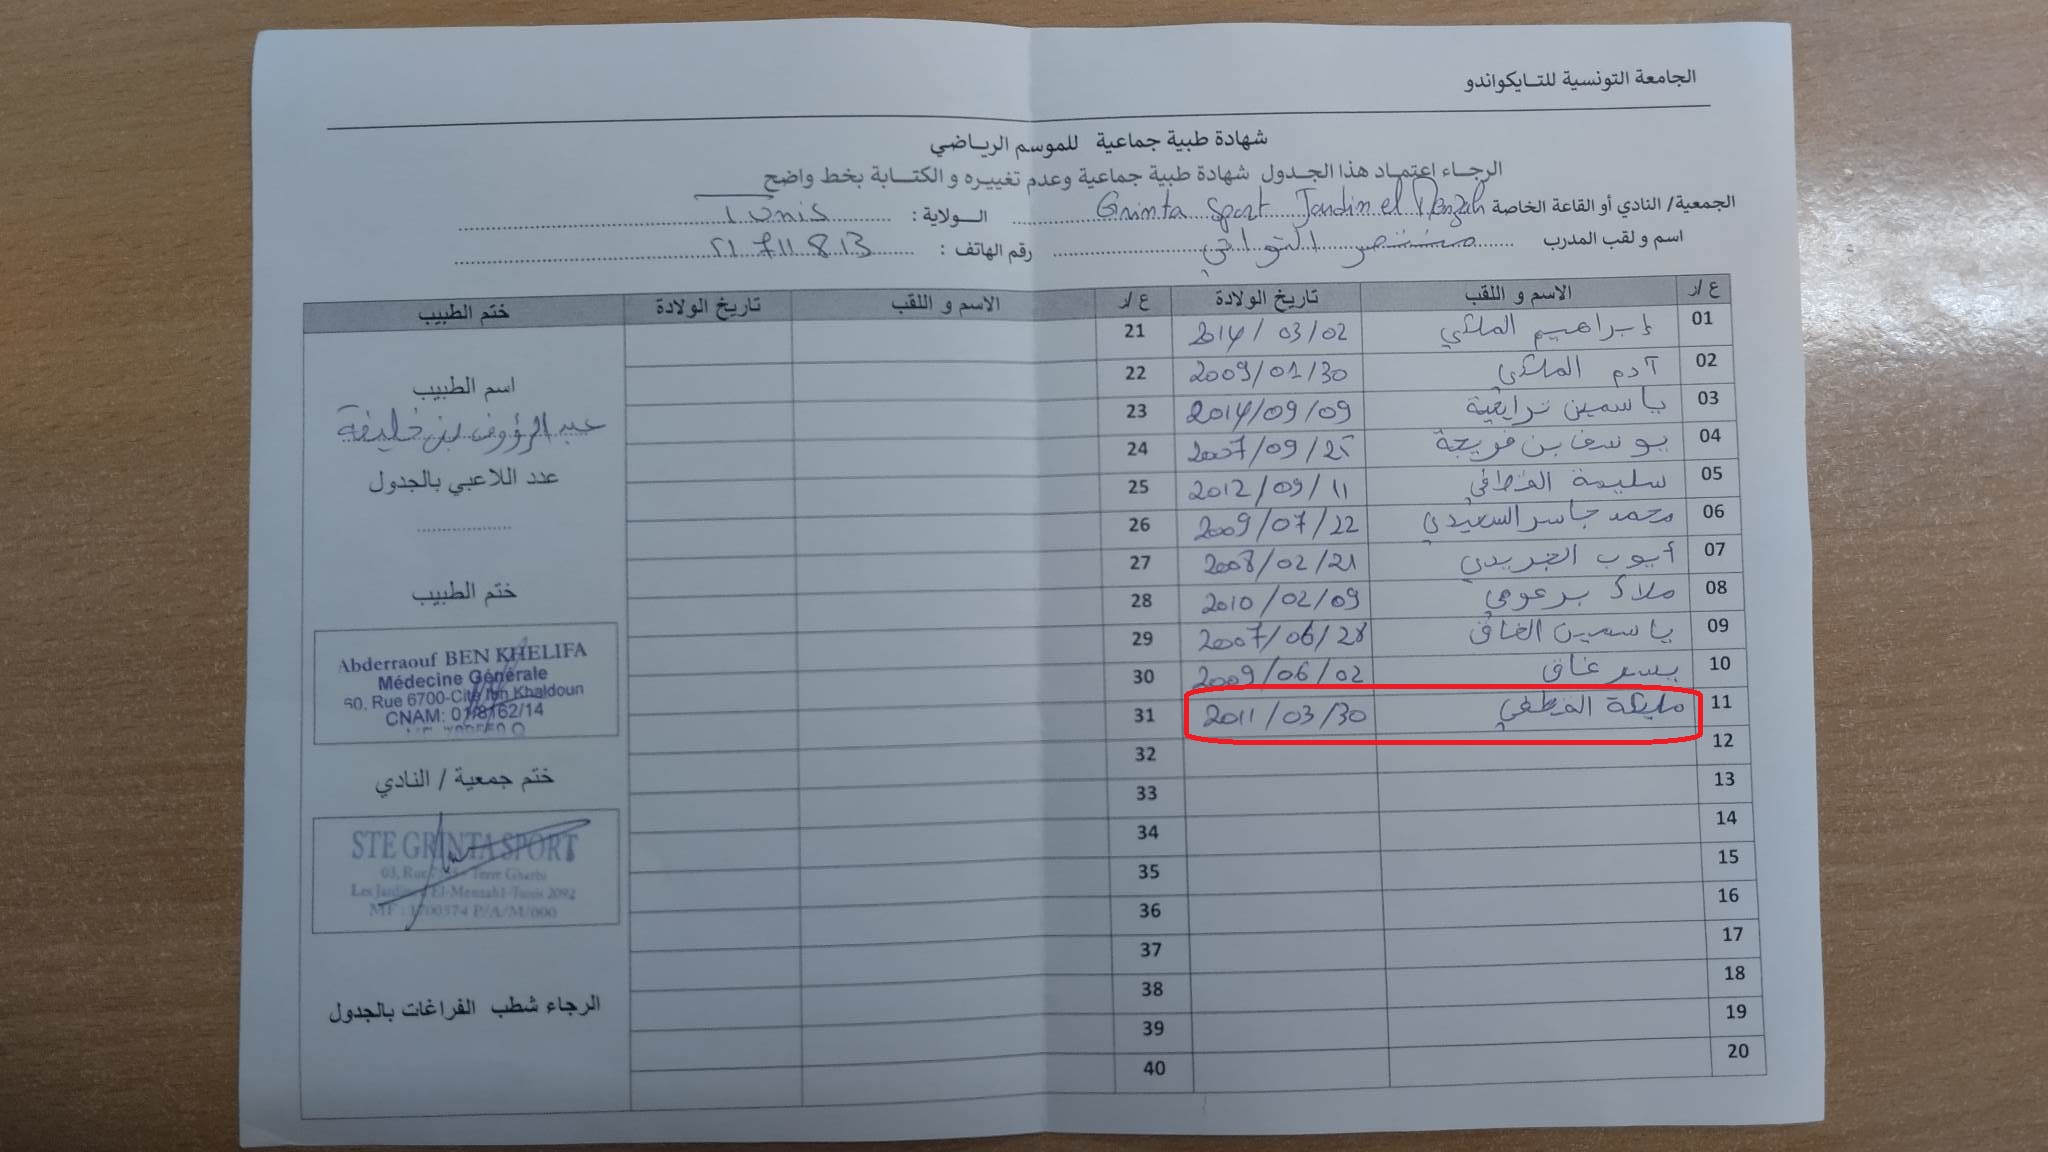 الجامعة التونسية للتايكواندو
شهادة طبية جماعية للموسم الرياضي
الرجاء اعتماد هذا الجدول شهادة طبية جماعية وعدم تغييره و الكتابة بخط واضح
الجمعية/ النادي أو القاعة الخاصة Grinta Sport Jardin el Menzah الولاية : Tunis
اسم و لقب المدرب منتصر التواتي رقم الهاتف : 21 711 813
ع/ر الاسم و اللقب تاريخ الولادة ع/ر الاسم و اللقب تاريخ الولادة ختم الطبيب
01 إبراهيم المالكي 2014/03/02 21
02 آدم المالكي 2009/01/30 22
03 ياسمين ترايعية 2014/09/09 23
04 يوسف بن فريجة 2007/09/25 24
05 سليمة القطفي 2012/09/11 25
06 محمد جاسر السعيدي 2009/07/22 26
07 أيوب الجريدي 2008/02/21 27
08 ملاك برعومي 2010/02/09 28
09 ياسمين الغاق 2007/06/28 29
10 يسر غاق 2009/06/02 30
11 مليكة القطفي 2011/03/30 31
12 32
13 33
14 34
15 35
16 36
17 37
18 38
19 39
20 40
اسم الطبيب
عبد الرؤوف بن خليفة
عدد اللاعبي بالجدول
....................
ختم الطبيب
Abderraouf BEN KHELIFA
Médecine Générale
60, Rue 6700-Cité Ibn Khaldoun
CNAM: 01/8162/14
ختم جمعية / النادي
STE GRINTA SPORT
03, Rue Terre Gharbi
Les Jardins El-Menzah1-Tunis 2092
MF : 1700574 P/A/M/000
الرجاء شطب الفراغات بالجدول